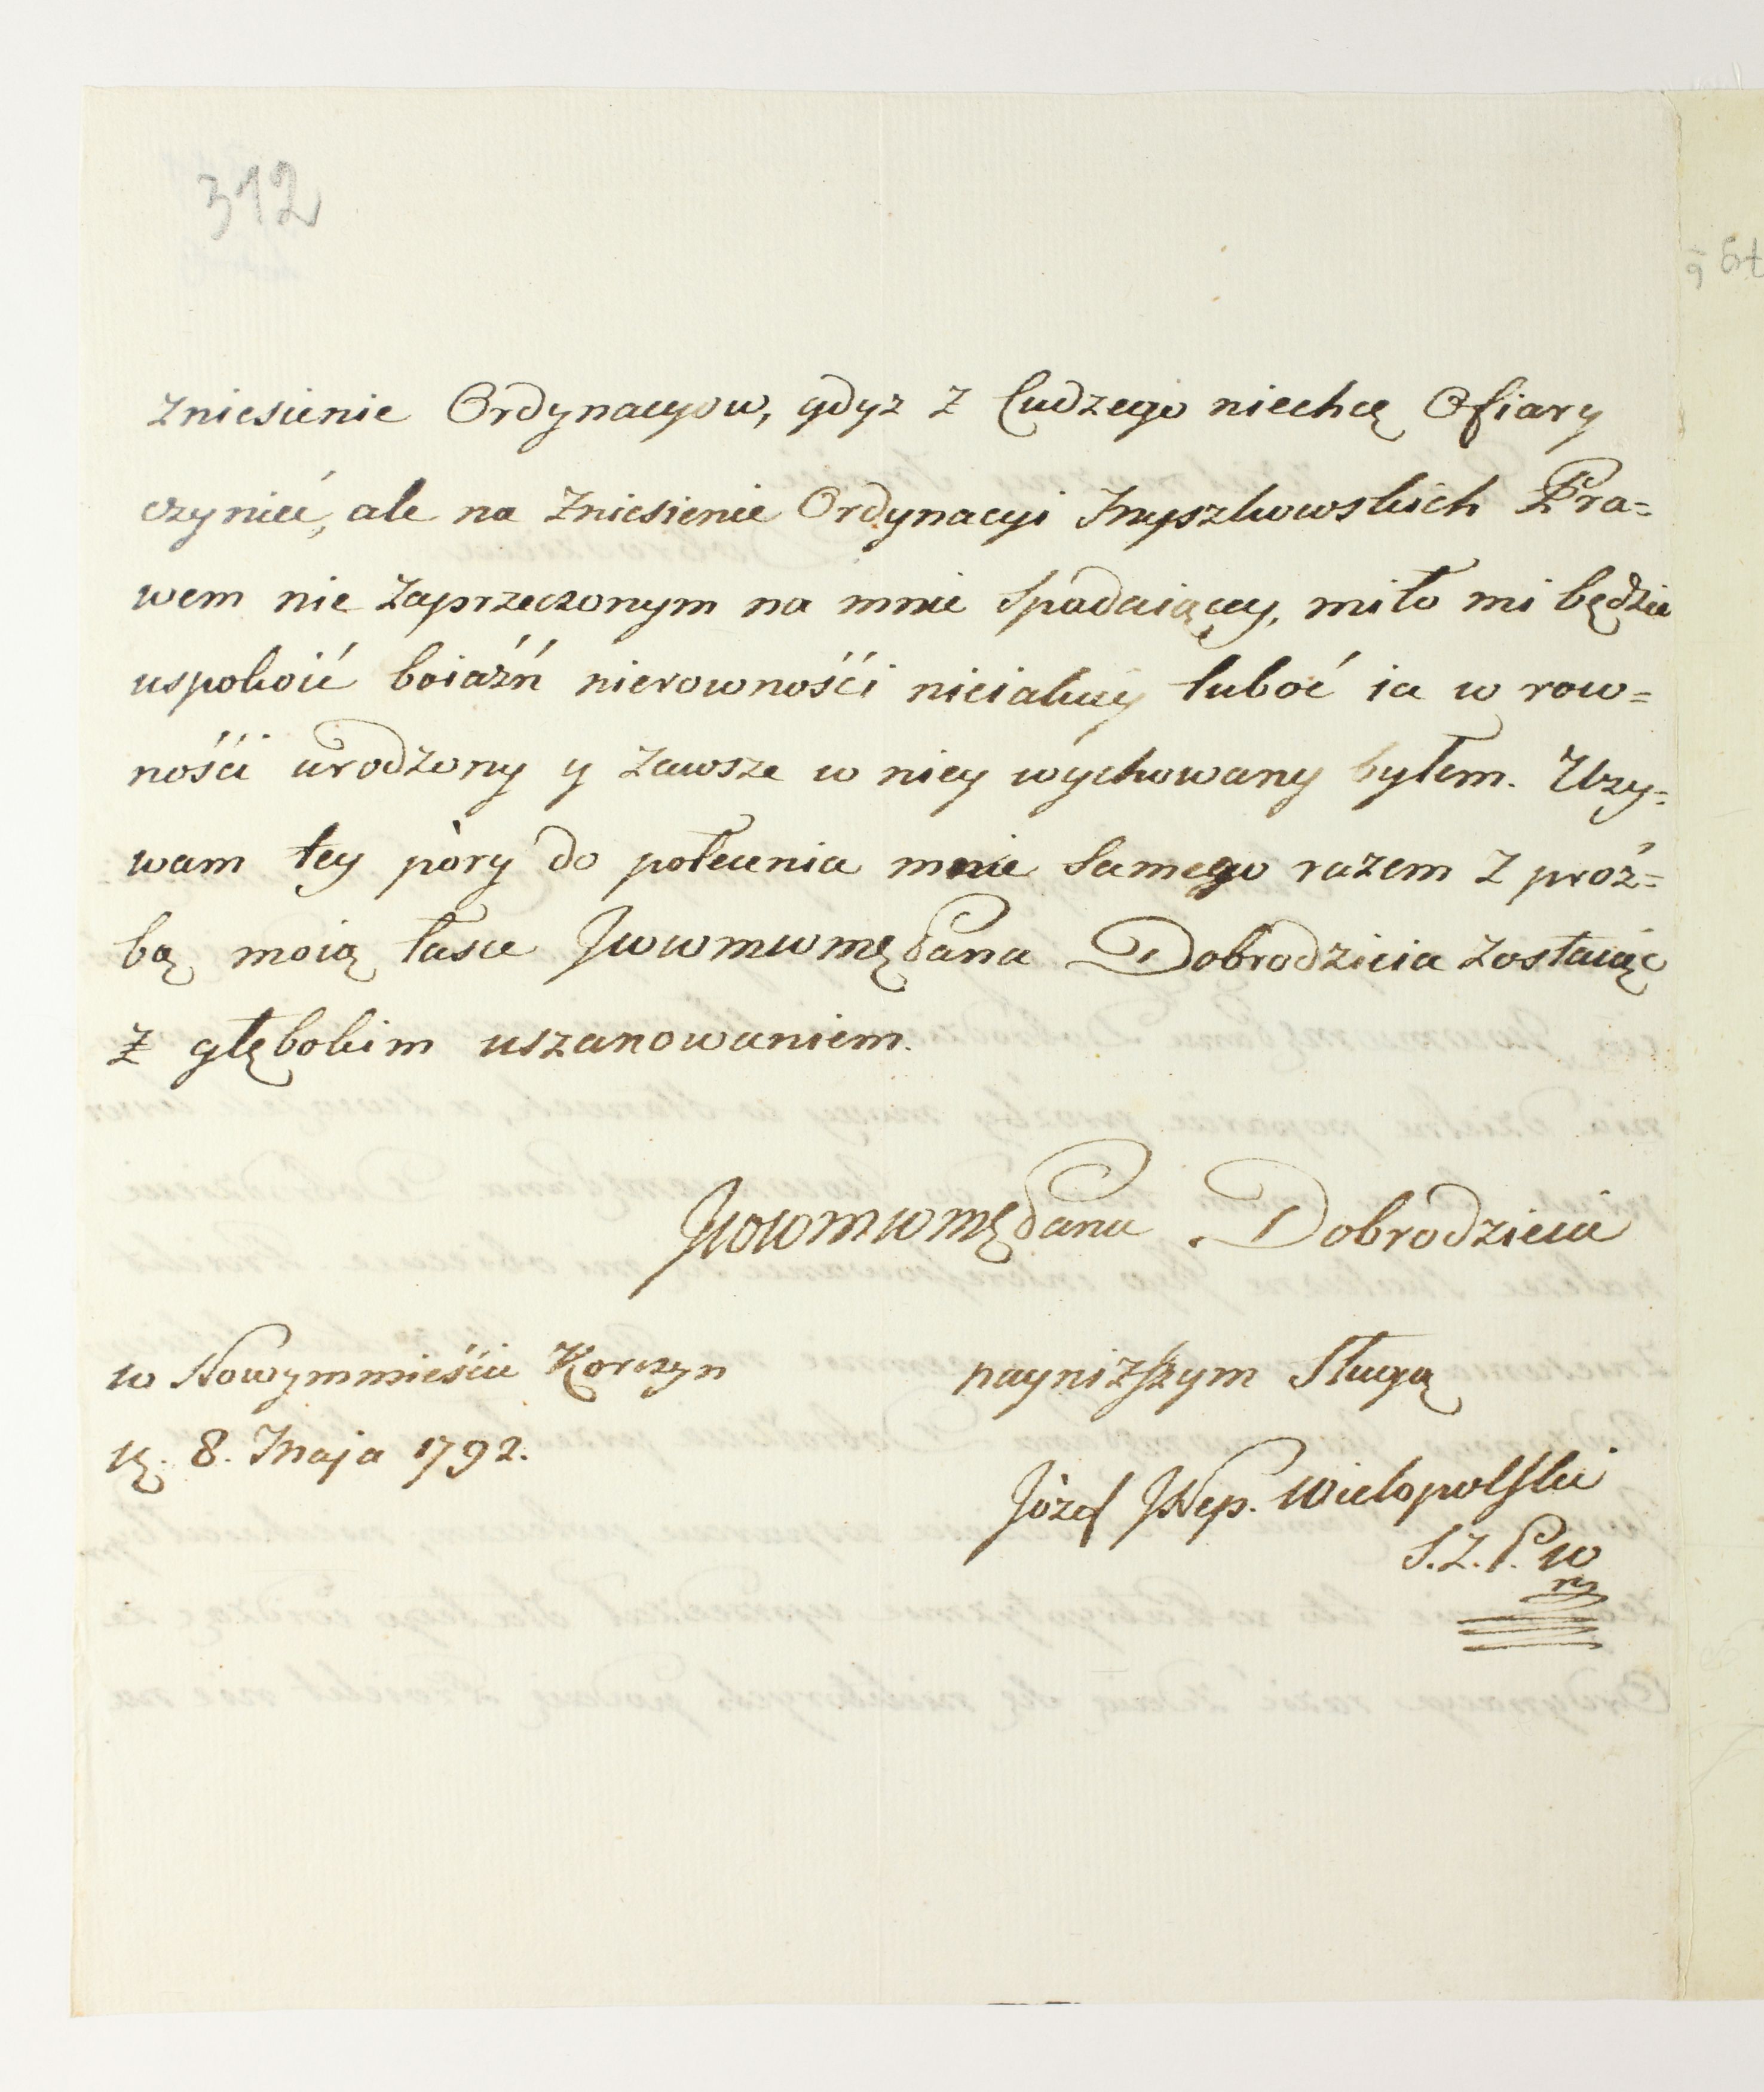 312
zniesienie Ordynacyow, gdyz z Cudzego niechcę Ofiary
czynić, ale na zniesienie Ordynacyi Myszkowskich Pra=
wem nie zaprzeczonym na mnie spadaiącey, miło mi będzie
uspokoić boiaźń nierownośći nieiakiey luboć ia w row=
nośći urodzony y zawsze w niey wychowany byłem. Uzy=
wam tey pory do polecenia mnie samego razem z proź=
bą moią łasce JWWMWMę Pana Dobrodzieia zostaiąc
z głębokim uszanowaniem.
JWWMWMę Pana Dobrodzieia
w Nowymmieśćie Korczyn
nayniższym Sługą
8. Maja 1792.
Józef JNep. Wielopolski